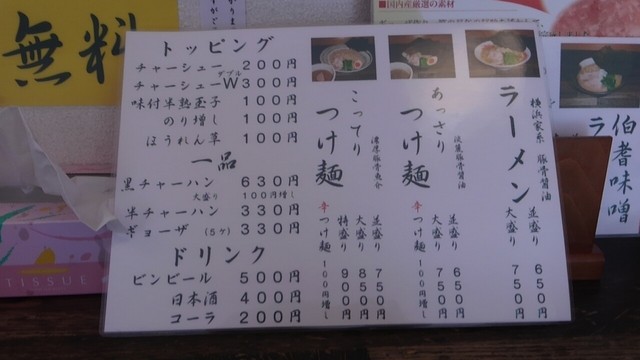 無料
■国内産厳選の素材
トッピング
チャーシュー 200円
チャーシューWダブル 300円
味付半熟玉子 100円
のり増し 100円
ほうれん草 100円
一品
黒チャーハン 630円
大盛り 100円増し
半チャーハン 330円
ギョーザ (5ケ) 330円
ドリンク
ビンビール 500円
日本酒 400円
コーラ 200円
横浜家系 豚骨醤油
ラーメン
並盛り 650円
大盛り 750円
淡麗豚骨醤油
あっさり
つけ麺
並盛り 650円
大盛り 750円
辛つけ麺 100円増し
濃厚豚骨魚介
こってり
つけ麺
並盛り 750円
大盛り 850円
特盛り 900円
辛つけ麺 100円増し
伯耆味噌
ラ
TISSUE